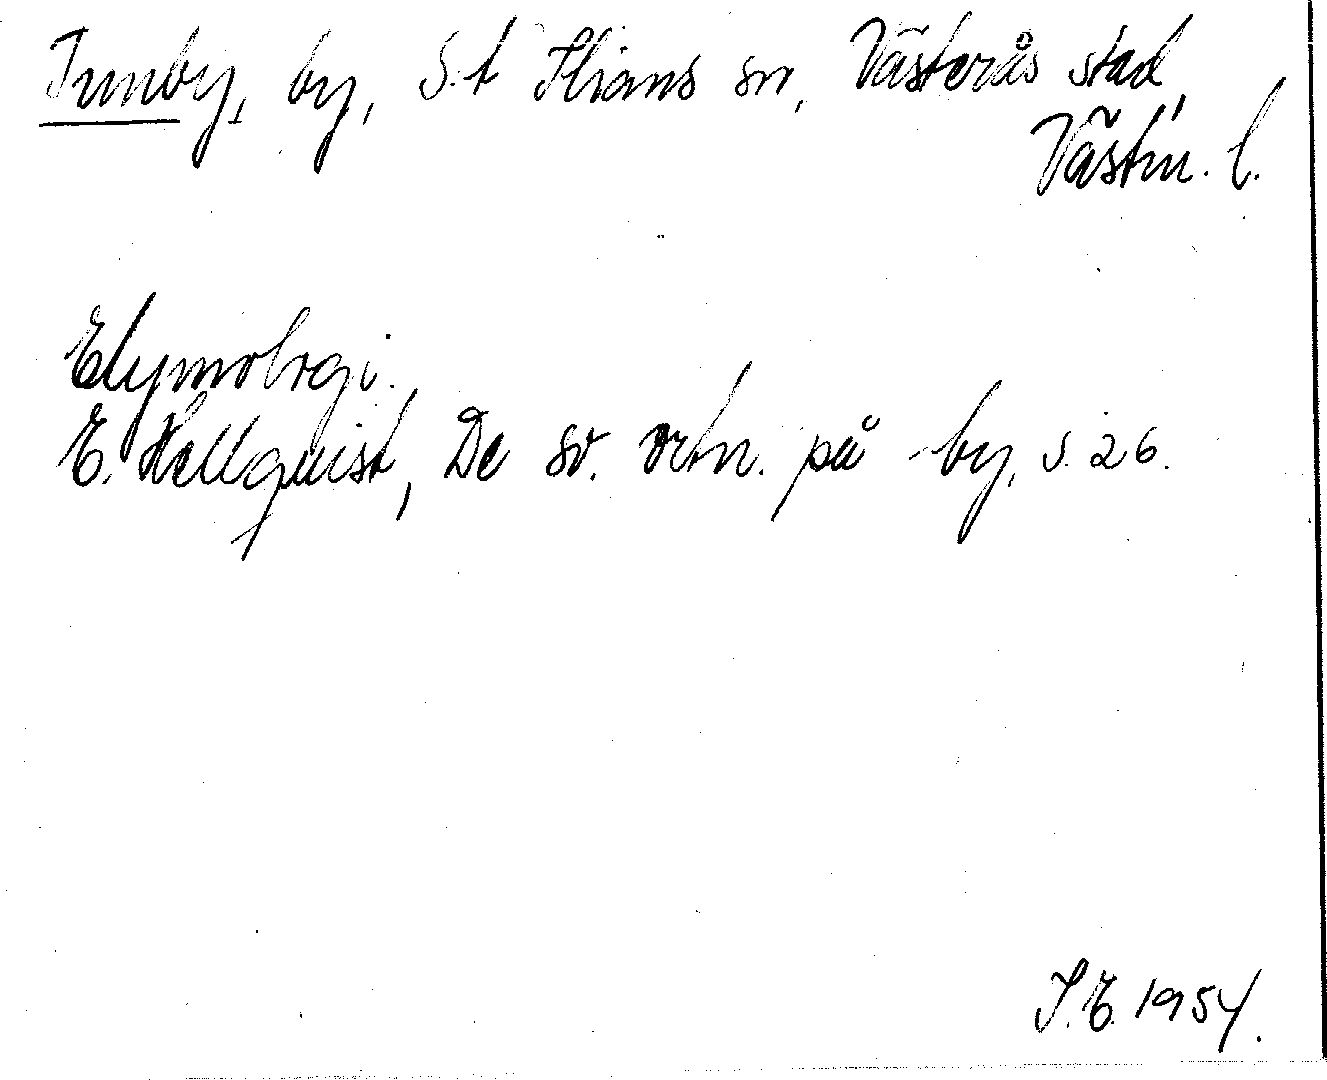 Tunby, by, S:t Ilians sn, Västerås stad,
Västm. l.
Etymologi.
E. Hellquist, De sv. ortn. på -by, s. 26.
I.E. 1954.